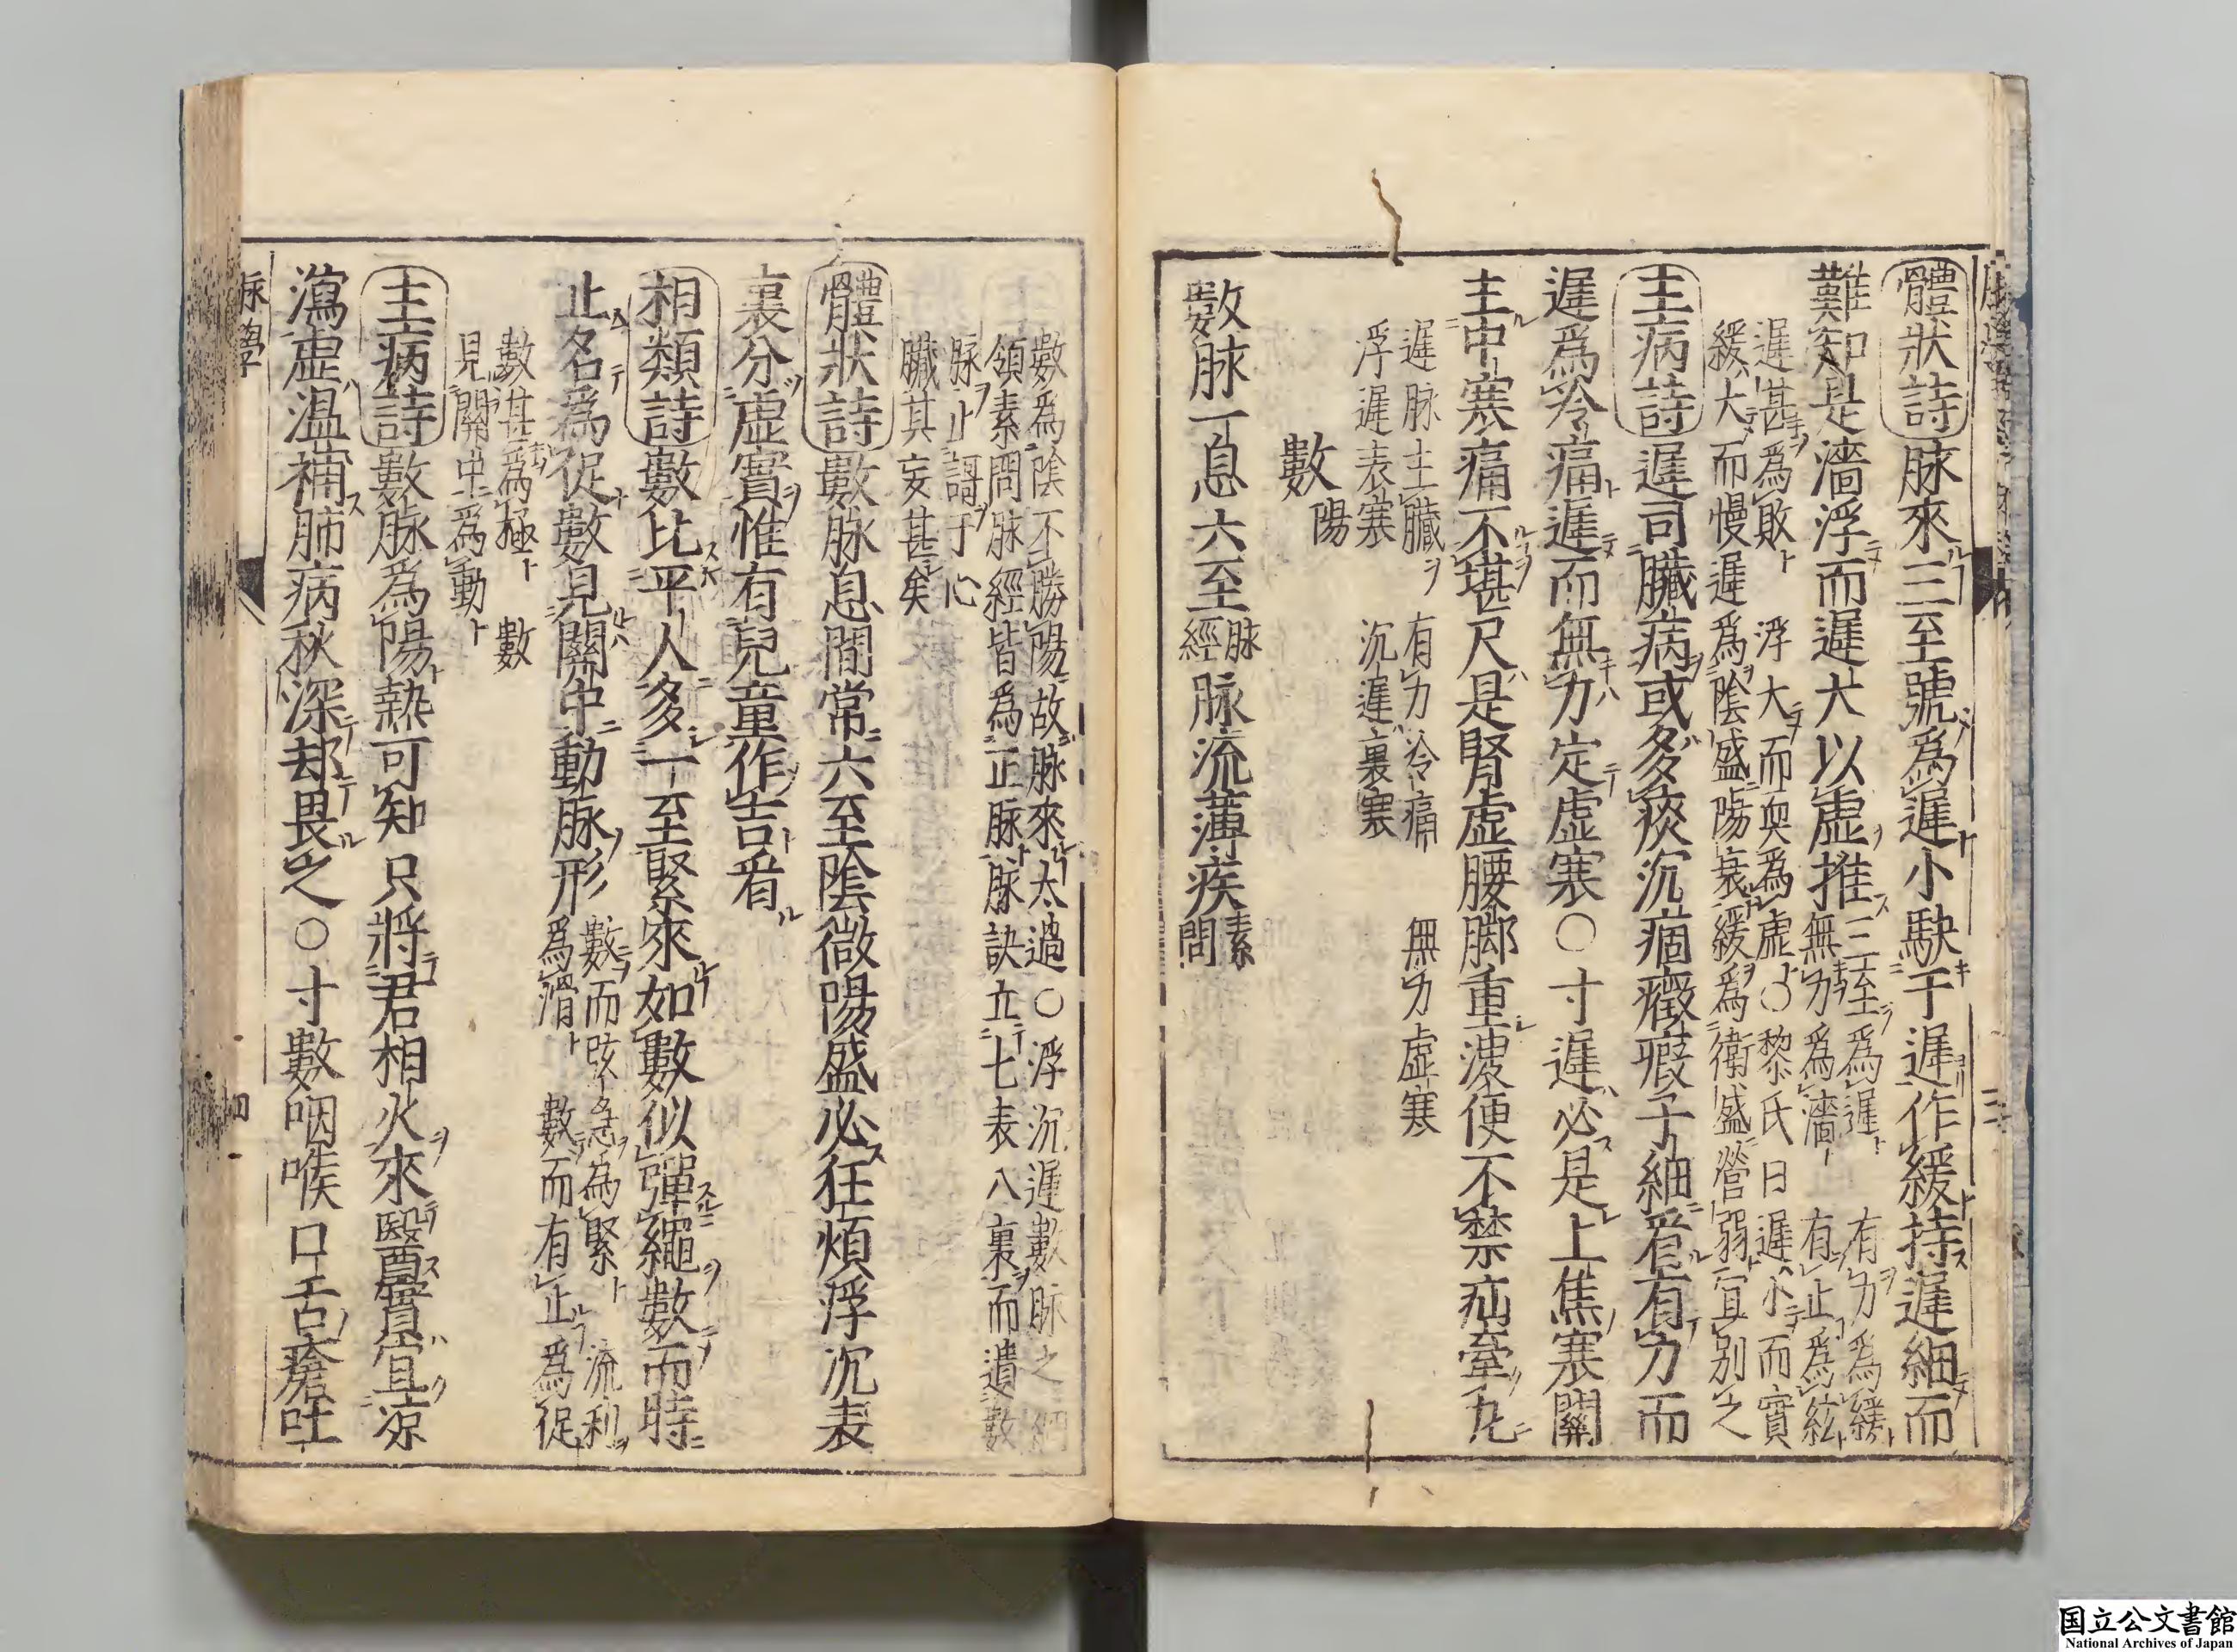 體狀詩脉來三至號爲遲小駃于遲作緩持遲細而
難知是濇浮而遲大以虛推
三至爲遲有力爲緩
無力爲濇有止爲結
遲甚爲敗浮大而耎爲虛○黎氏曰遲小而實
緩大而慢遲爲陰盛陽衰緩爲衛盛營弱宜別之
主病詩遲司臟病或多痰沉痼癥瘕子細看有力而
遲爲冷痛遲而無力定虛寒○寸遲必是上焦寒關
主中寒痛不堪尺是腎虛腰脚重溲便不禁疝牽丸
遲脉主臟有力冷痛無力虛寒
浮遲表寒沉遲裏寒
數陽
數脉一息六至脉經脉流薄疾素問
數爲陰不勝陽故脉來太過○浮沉遲數脉之綱
領素問脉經皆爲正脉脉訣立七表八裏而遺數
脉止謌于心
臟其妄甚矣
體狀詩數脉息間常六至陰微陽盛必狂煩浮沉表
裏分虛實惟有兒童作吉看
相類詩數比平人多一至緊來如數似彈繩數而時
止名爲促數見關中動脉形
數而弦急爲緊流利
爲滑數而有止爲促
數甚爲極數
見關中爲動
主病詩數脉爲陽熱可知只將君相火來醫實宜涼
瀉虛温補肺病秋深却畏之○寸數咽喉口舌瘡吐
脉學
四
国立公文書館
National Archives of Japan